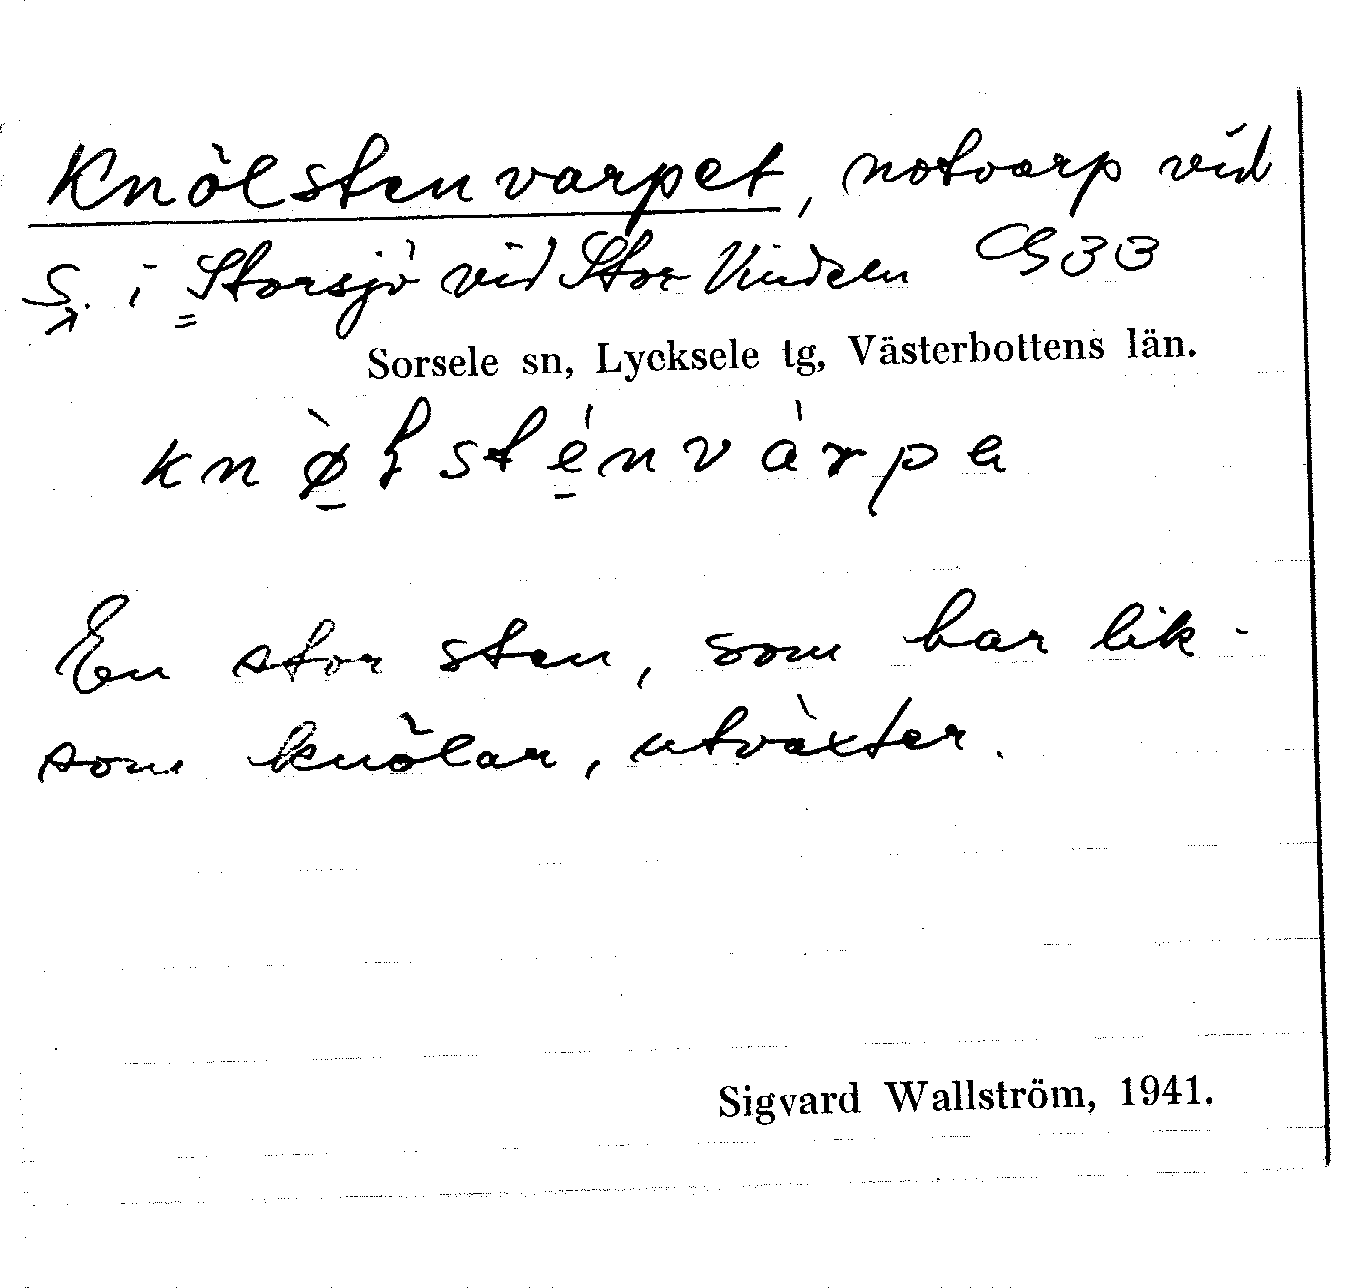 Knölstenvarpet, notvarp vid
S. i Storsjö vid Stor Vindeln
Sorsele sn, Lycksele tg, Västerbottens län.
En stor sten, som har lik-
som knölar, utväxter.
Sigvard Wallström, 1941.